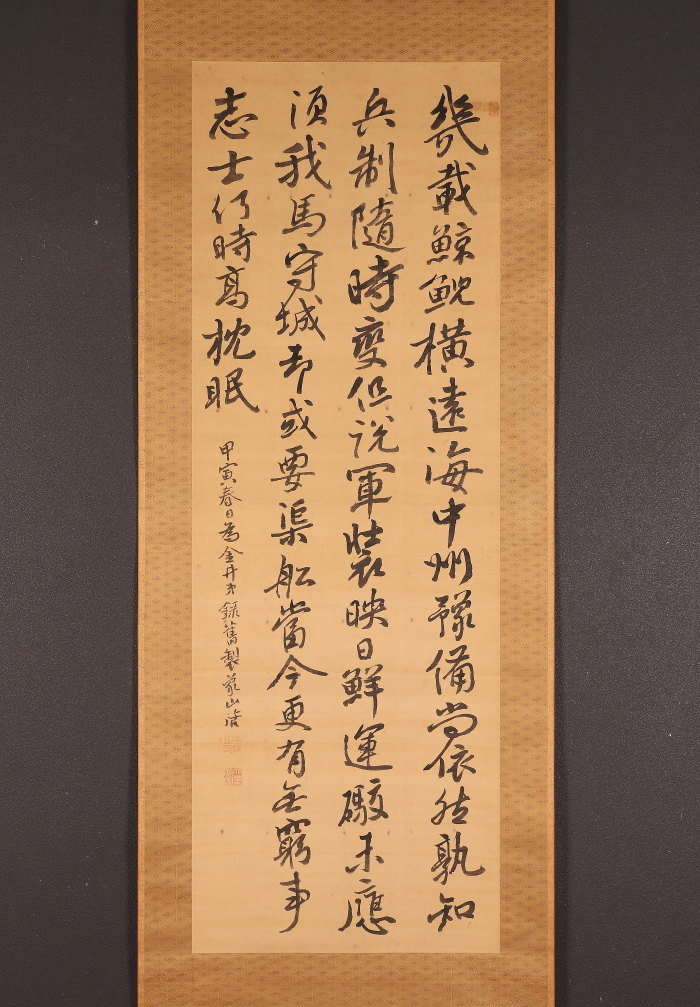 幾載鯨鯢横遠海中州豫備尚依然孰知
兵制隨時変但説軍装映日鮮運礟未應
須我馬守城却或要渠船當今更有無窮事
志士何時高枕眠
甲寅春日為金井 録舊製象山